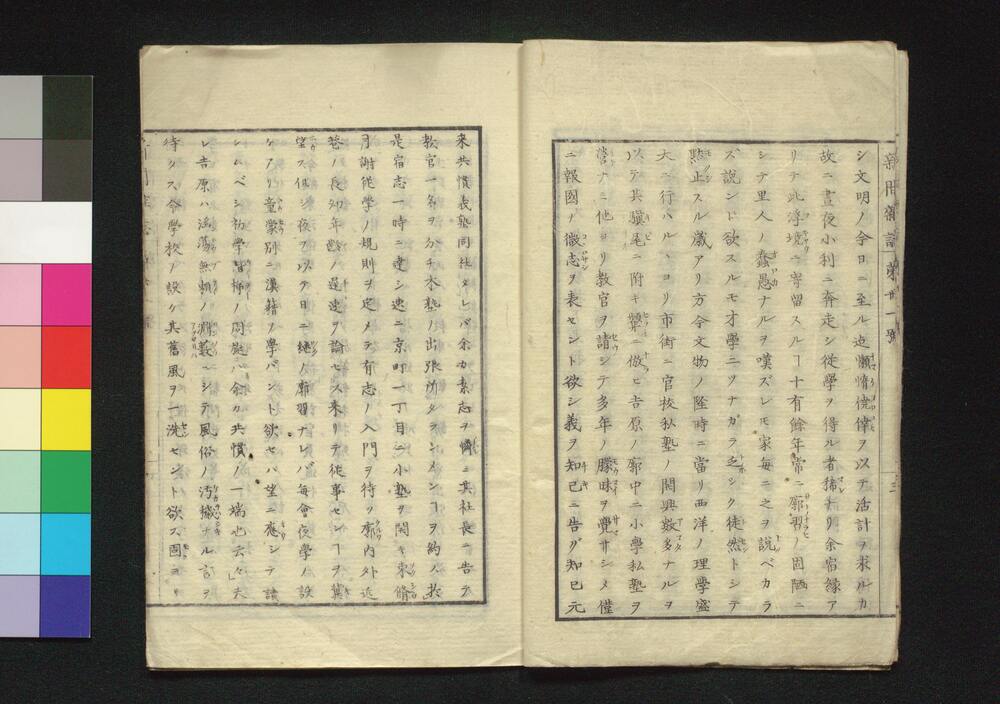 新聞雜誌第廿一號
シ文明ノ今日ニ至ル迄懶惰僥倖ヲ以テ活計ヲ求ルカ
故ニ晝夜小利ニ奔走シ從學ヲ得ル者稀ナリ余宿縁ア
リテ此浮境ニ寄留スルヿ十有餘年常ニ廓習ノ固陋ニ
シテ里人ノ蠢愚ナルヲ嘆ズレモ家毎ニ之ヲ説ベカラ
ズ説ント欲スルモ才學二ツナガラ乏シク徒然トシテ
黙止スル歳アリ方今文物ノ隆時ニ當リ西洋ノ理學盛
大ニ行ハルヽヨリ市街ニ官校私塾ノ開興數多ナルヲ
以テ其驥尾ニ附キ顰ニ倣ヒ吉原ノ廓中ニ小學私塾ヲ
營ナミ他ヨリ教官ヲ請シテ多年ノ朦昧ヲ覺サシメ僅
ニ報國ノ微志ヲ表セント欲シ義ヲ知己ニ告グ知己元
三
來共慣義塾同社タレバ余カ素志ヲ憐ミ其社長ニ告テ
教官一名ヲ分チ本塾ノ出張所タラシメンヿヲ約ス於
是宿志一時ニ達シ速ニ京町一丁目ニ小塾ヲ開キ束脩
月謝從學ノ規則ヲ定メテ有志ノ入門ヲ待ツ廓内外近
巷ノ長幼年齡ノ遲速ヲ論セス來リテ從事センヿヲ冀
望ス但シ夜ヲ以テ日ニ繼ノ廓習ナレバ毎會夜學ノ設
ケアリ童蒙別ニ漢籍ヲ學バント欲セハ望ニ應シテ讀
シムベシ初學皆梯ノ周旋ハ余カ共慣ノ一端也云々」夫
レ吉原ハ淫蕩無頼ノ淵藪ニシテ風俗ノ汚穢ナル言ヲ
待タス今學校ノ設ケ其舊風ヲ一洗セント欲ス固ヨリ